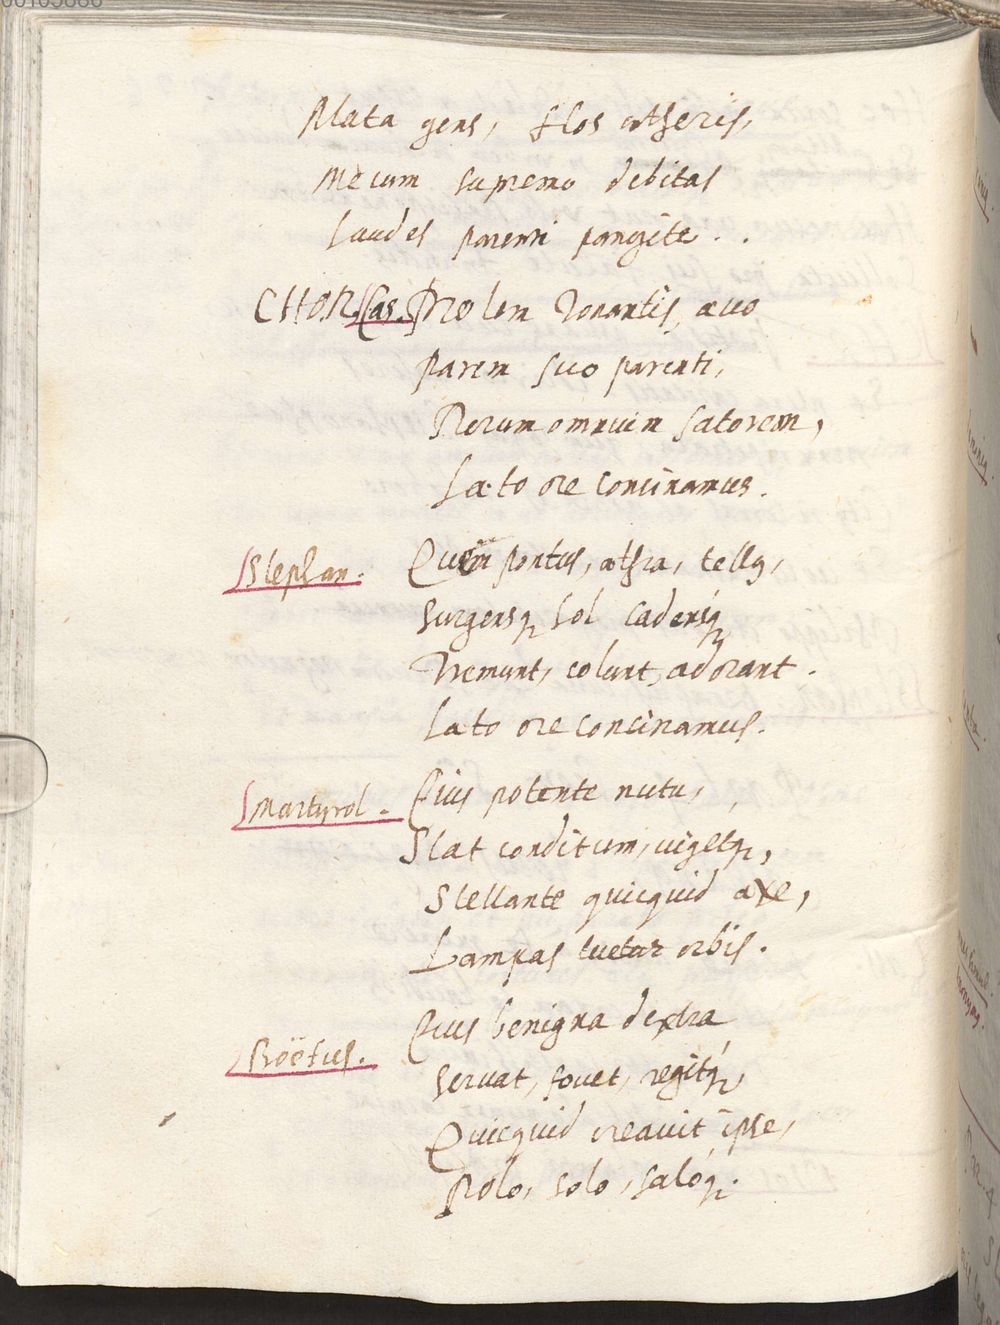 Nata gens, flos ætheris,
Mecum supremo debitas
Laudes parenti pangite.
CHOR. Cas. Prolem Tonantis, æuo
Parem suo parenti,
Rerum omnium satorem,
Læto ore concinamus.
Stephan. Quem pontus, æthra, tellq,
Surgensq; Sol cadensq;
Tremunt, colunt, adorant.
Læto ore concinamus.
Martyrol. Eius potente nutu,
Stat conditum, uigetq;,
Stellante quicquid axe,
Lampas tuetar orbis.
Eius benigna dextra
Boëtus. Seruat, fouet, regitq;,
Quicquid creauit ipse,
Polo, solo, salóq;.